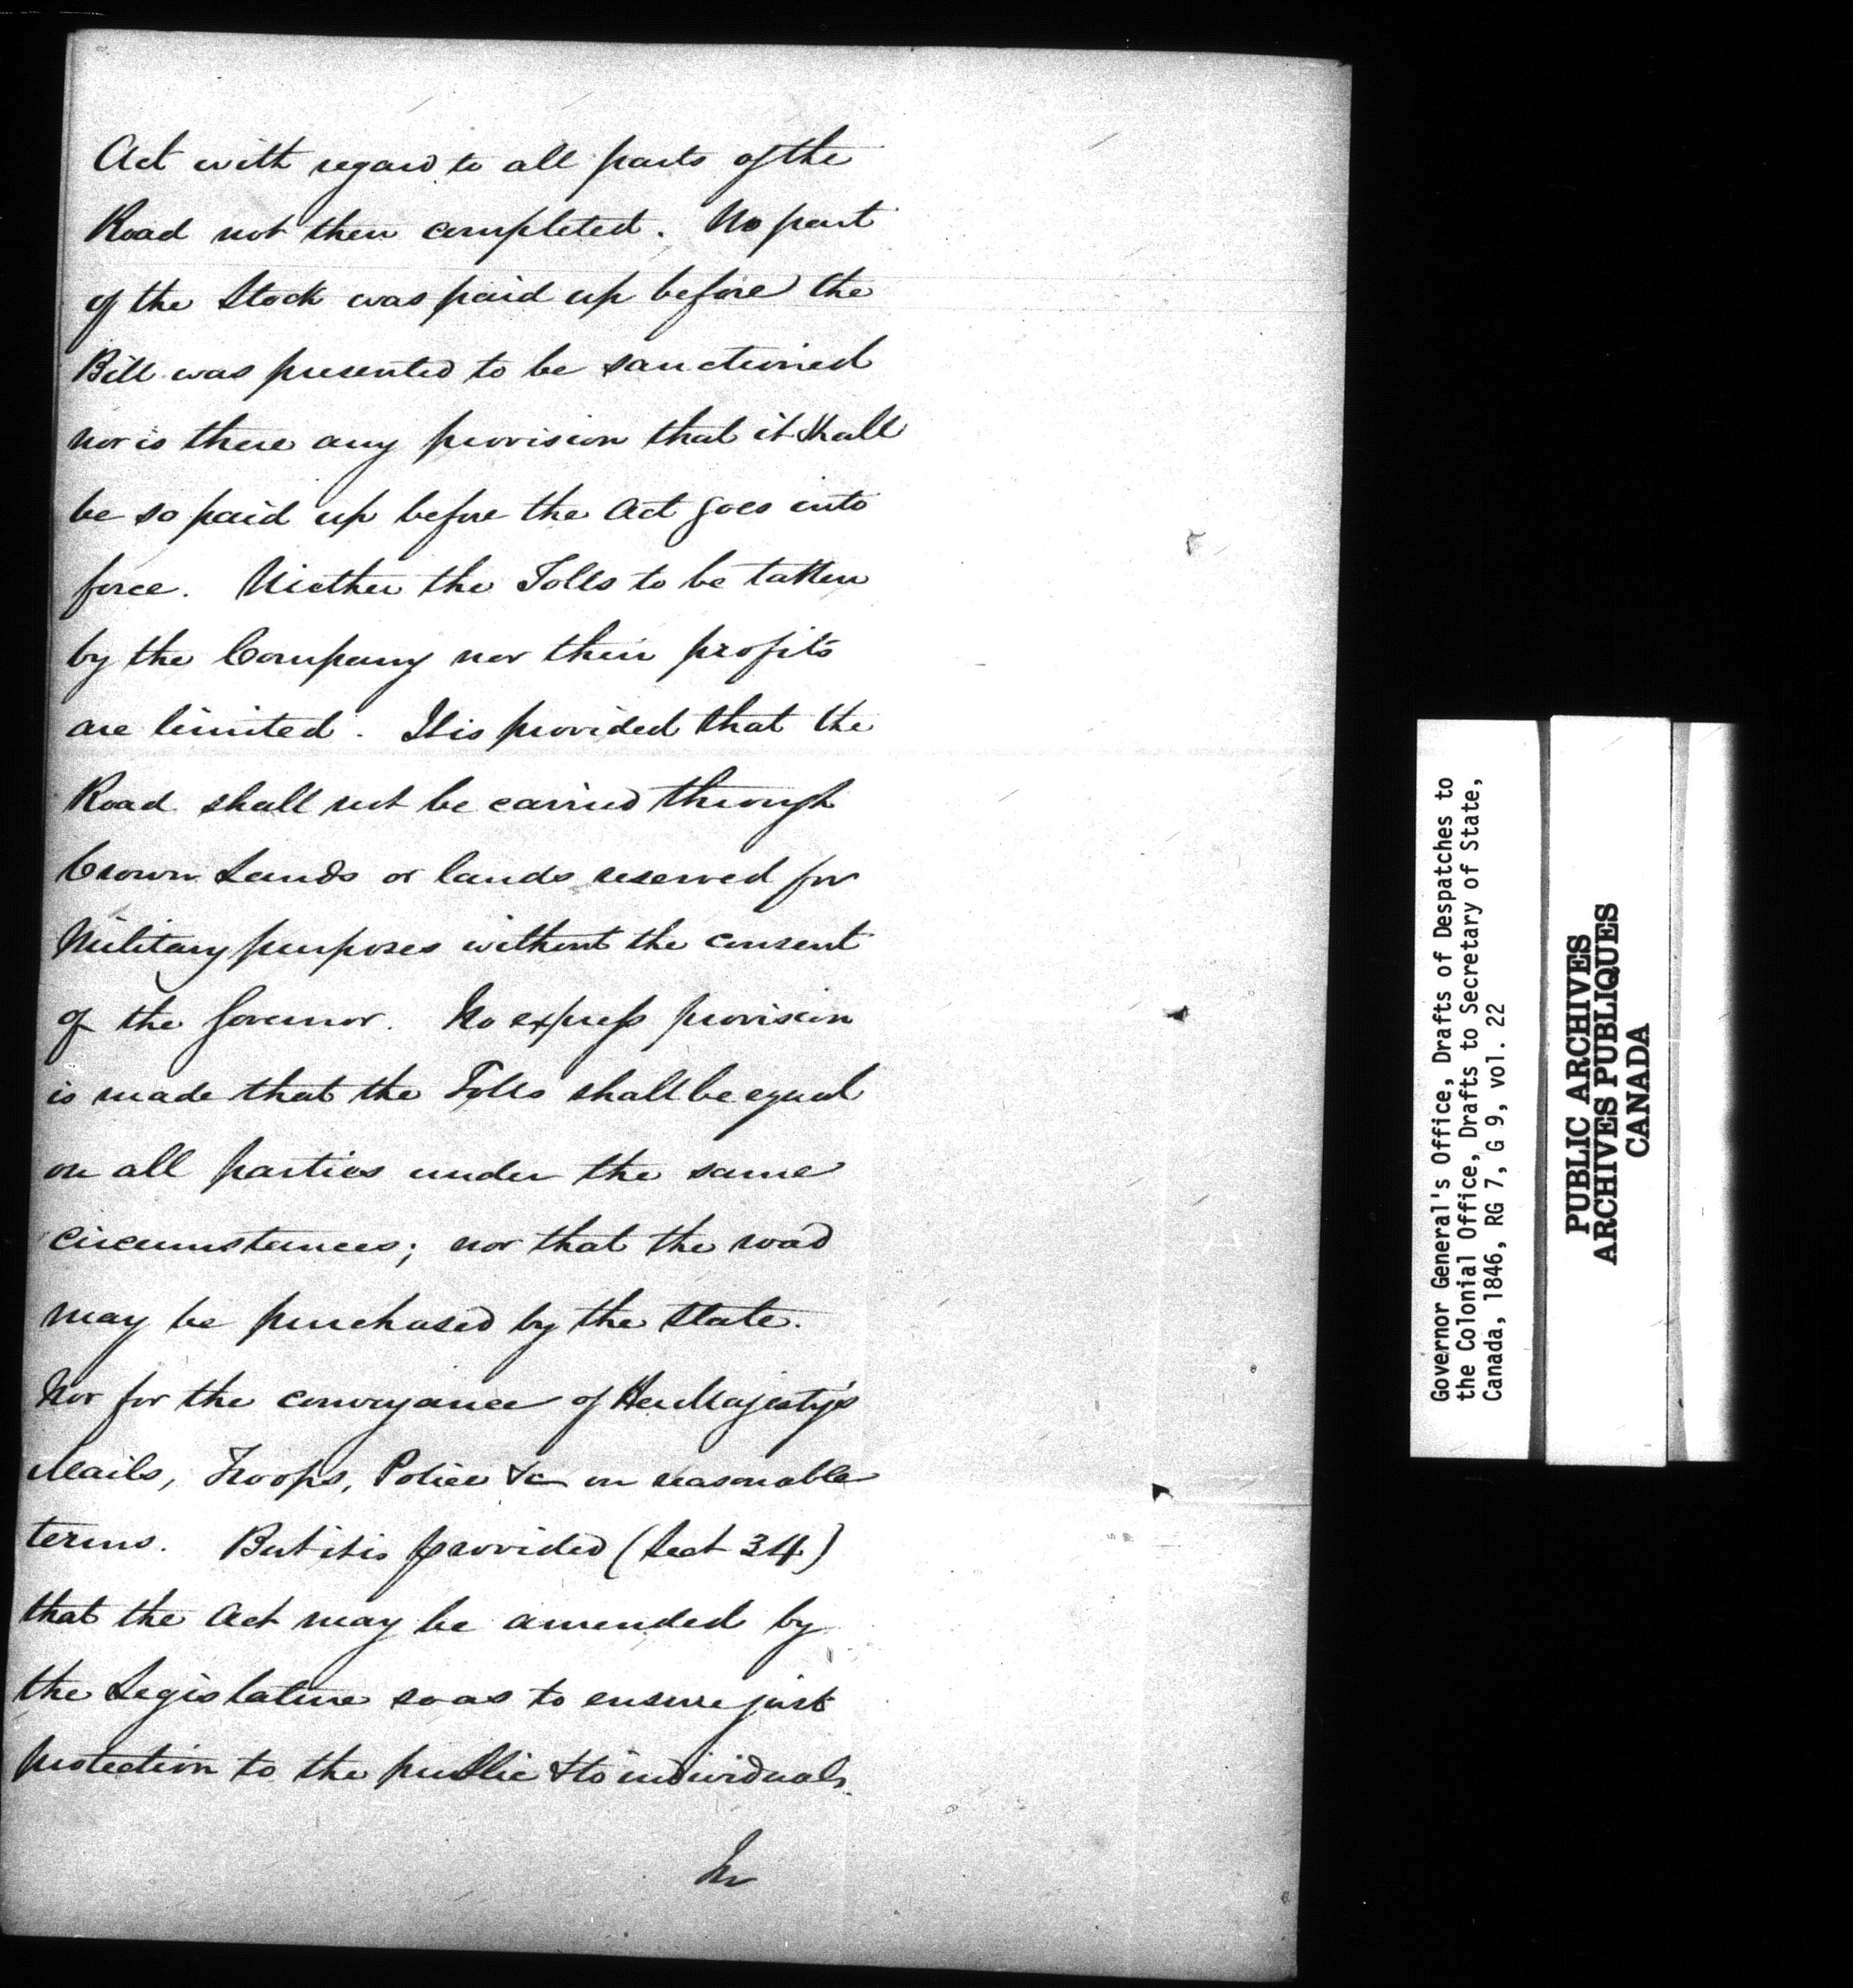 Act with regard to all parts of the
Road not then completed. No part
of the Stock was paid up before the
Bill was presented to be sanctioned
nor is there any provision that it shall
be so paid up before the Act goes into
force. Niether the Tolls to be taken
by the Company nor their profits
are limited. It is provided that the
Road shall not be carried through
Crown Lands or lands reserved for
Military purposes without the consent
of the Governor. No express provision
is made that the Tolls shall be equal
on all parties under the same
circumstances; nor that the road
may be purchased by the State.
Nor for the conveyance of Her Majesty's
Mails, Troops, Police &c on reasonable
terms. But it is provided (Sect 34)
that the Act may be amended by
the Legislature so as to ensure just
protection to the public & to individuals.
In
Governor General's Office, Drafts of Despatches to
the Colonial Office, Drafts to Secretary of State,
Canada, 1846, RG 7, G 9, vol. 22
PUBLIC ARCHIVES
ARCHIVES PUBLIQUES
CANADA